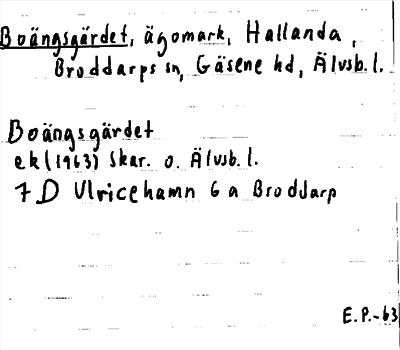 Boängsgärdet, ägomark, Hallanda,
Broddarps sn, Gäsene hd, Älvsb. l.
Boängsgärdet
ek (1963) Skar. o. Älvsb. l.
7 D Ulricehamn 6 a Broddarp
E.P.-63